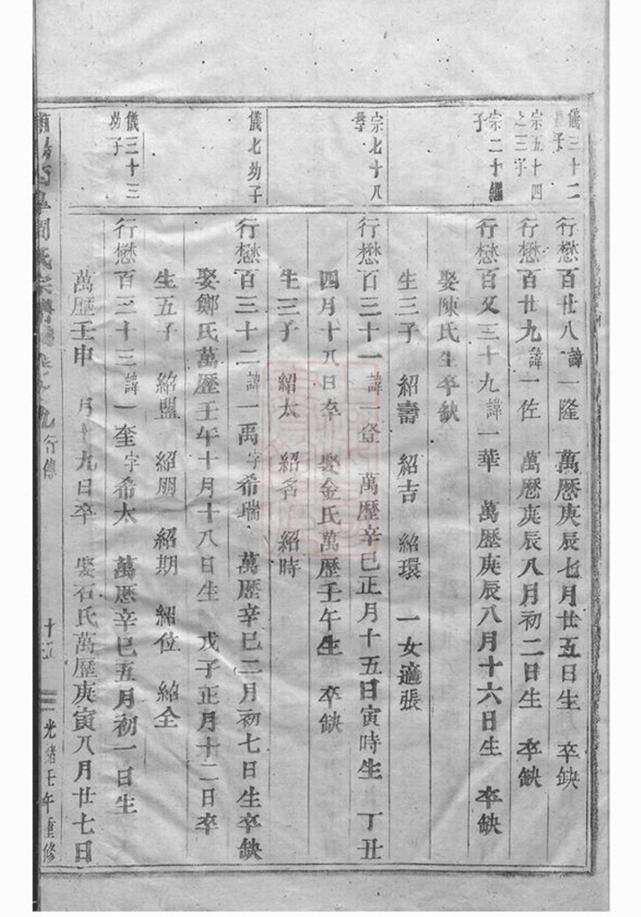 儀三十二
子
宗五十四
之三子
宗二十繼
子
宗七十八
儀七幼子
儀三十三
幼子
行懋百廿八諱一隆 萬曆庚辰七月廿五日生 卒缺
行懋百廿九諱一佐 萬曆庚辰八月初二日生 卒缺
行懋百又三十九諱一華 萬曆庚辰八月十六日生 卒缺
娶陳氏生卒缺
生三子 紹壽 紹吉 紹環 一女適張
行懋百三十一諱一登 萬曆辛巳正月十五日寅時生 丁丑
四月十八日卒 娶金氏萬曆壬午生 卒缺
生三子 紹太 紹名 紹時
行懋百三十二諱一禹字希瑞 萬曆辛巳二月初七日生卒缺
娶鄭氏萬曆壬午十月十八日生 戊子正月十二日卒
生五子 紹盟 紹朋 紹期 紹位 紹全
行懋百三十三諱一奎字希太 萬曆辛巳五月初一日生
萬曆壬申 月十九日卒 娶石氏萬曆庚寅八月廿七日
氏宗譜 行傳
光緒壬午重修